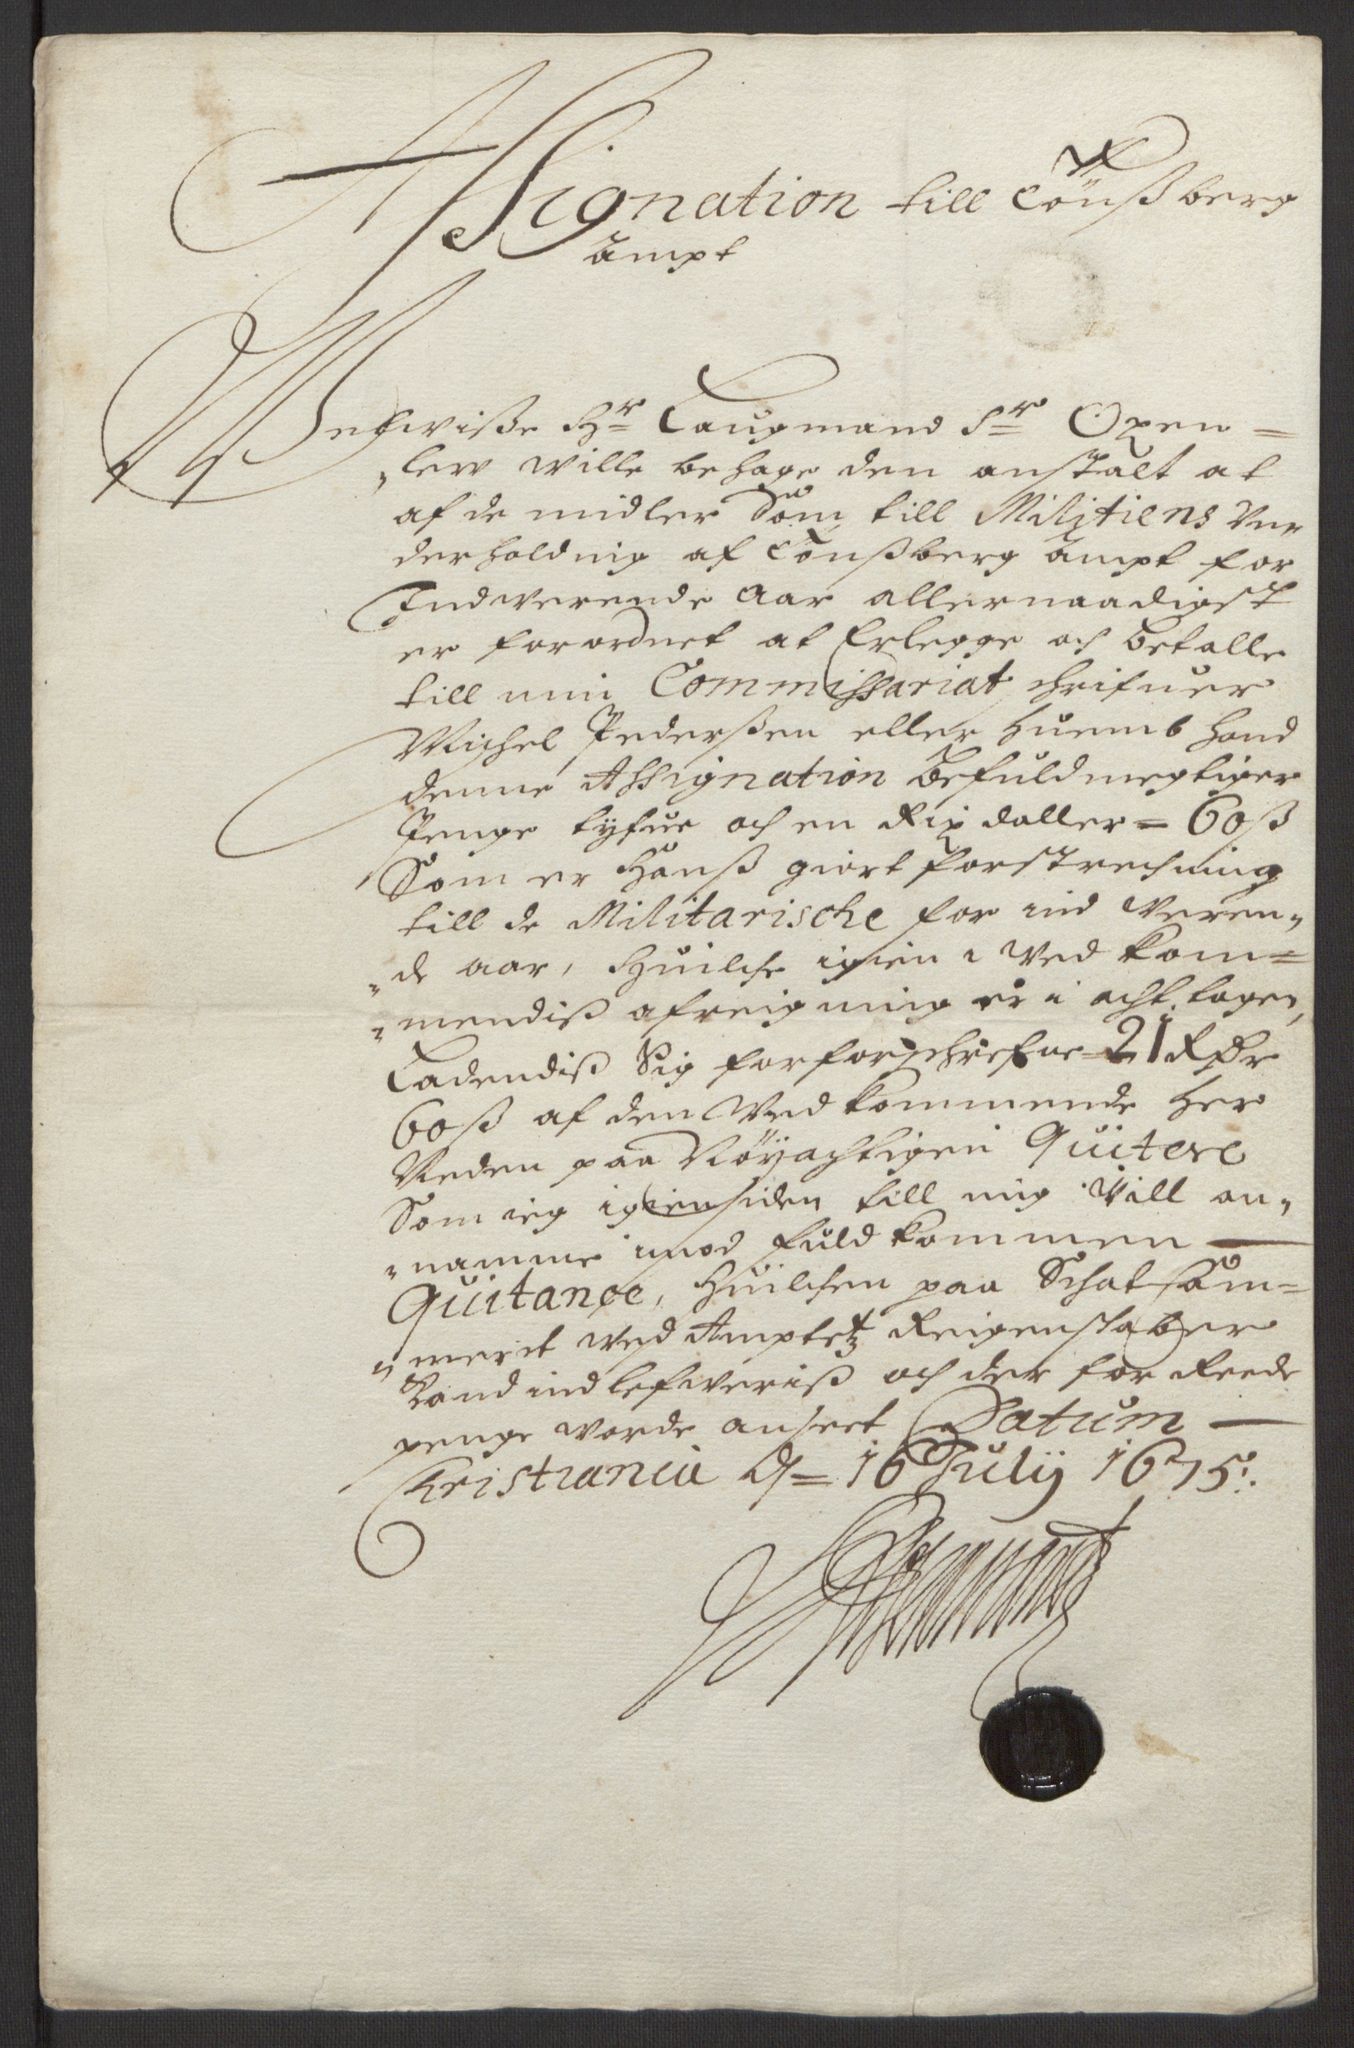 Assignation till Tönßberg
Ampt
Velwiße Hr Laugmand Sr Oxen=
lew wille behage den anstalt at
af de midler Som till Militiens Un,
derholdnig af Tönßberg Ampt for
Indverende Aar allernaadigst
er forordnet at Erlegge och betalle
till min Commissariat schrifuer
Michel Pederßen eller huemb hand
denne Assignation befuldmegtiger
Penge tyfue och en Rix daller = 60 ß
Som er Hanß giort forstrechning
till de Militarische for ind Veren,,
,,de aar, Huilche igien i Ved kom=
,,mendiß afreigning er i acht tagen,
Ladendiß Sig for forschrefne = 21 Rdr
60 ß af den Ved kommende her
Neden paa Nöyachtigen Quitere
Som ieg igien siden till mig Vill an,,
,,namme imod fuld kommen —
Quitance, Huilchen paa Schatkam=
,,merit ved Amptetz Reigenskaber
Kand indlefweriß och der for Reede
penge worde anseet Datum —
Christiania d = 16 July 1675.